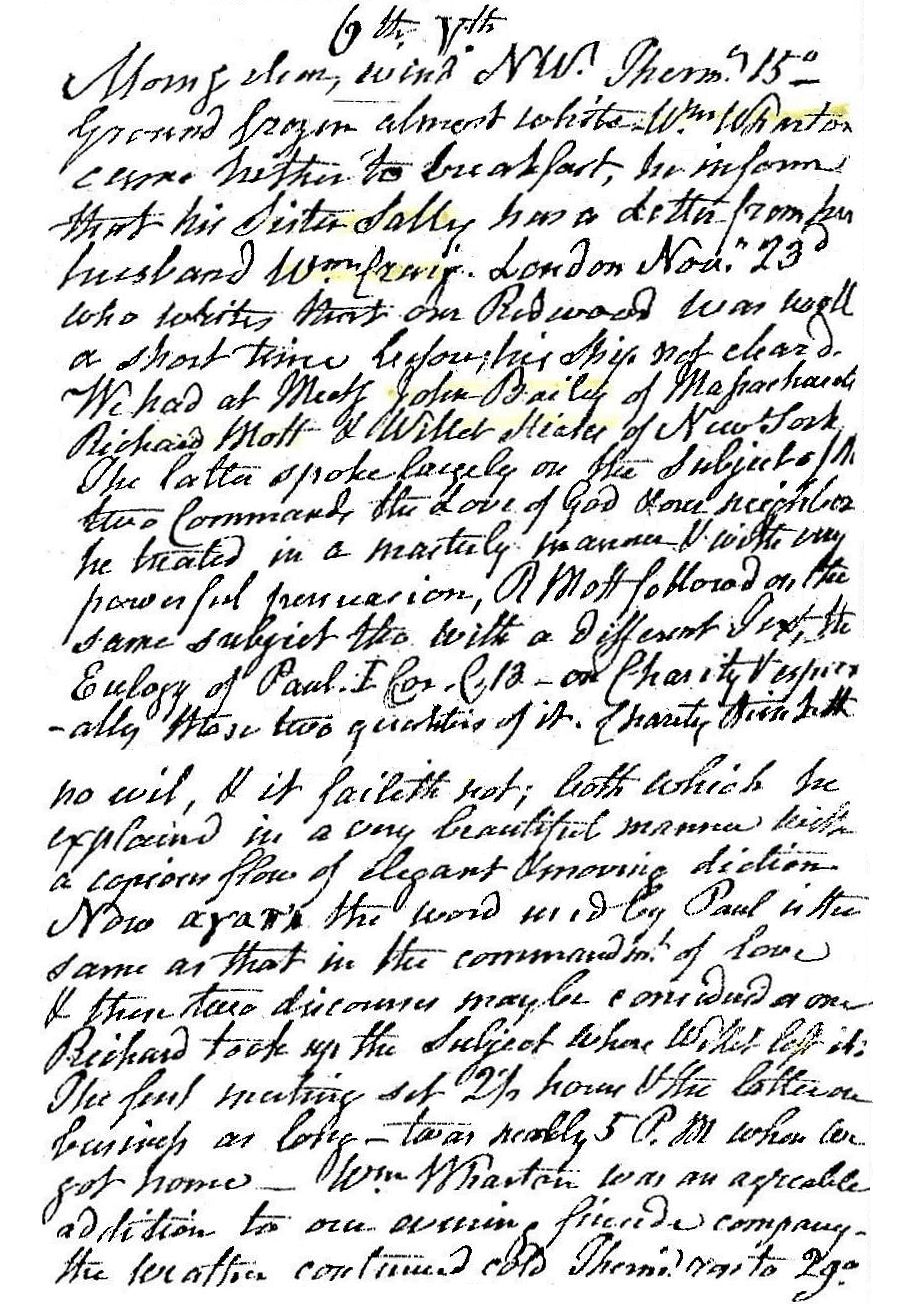 6th Vth
Morng clear, wind NW. Therm. 15°
Ground frozen almost white. Wm Wharton
came hither to breakfast, he informs
that his Sister Sally has a Letter from her
husband Wm Craig. London Nov. 23d
who writes that our Redwood was well
a short time before, his ship not clear'd.
We had at Meetg John Baily of Massachusets
Richard Mott & Willet Hicks of New York
The latter spoke largely on the Subject of the
two Commands the Love of God & our neighbor
he treated in a masterly manner & with very
powerful persuasion, R Mott followed on the
same subject tho with a different Text, the
Eulogy of Paul. I Cor. C, 13 - on Charity & especi
-ally those two qualities of it. Charity thinketh
no evil, & it faileth not; both which he
explained in a very beautiful manner with
a copious flow of elegant & moving diction
Now αγαπη the word used by Paul is the
same as that in the commandmt. of Love
& these two discourses may be considered as one
Richard took up the Subject where Willet left it:
The first meeting set 2½ hours & the latter on
business as long - twas nearly 5 P. M when we
got home — Wm Wharton was an agreeable
addition to our evening fireside company -
the weather continued cold Therm. rose to 29°